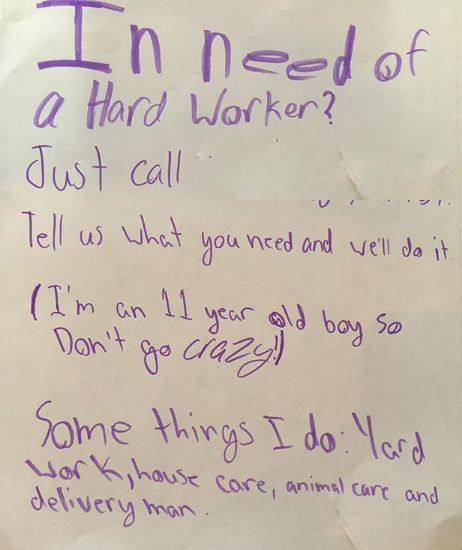 In need of
a Hard Worker?
Just call
Tell us what you need and we'll do it.
(I'm an 11 year old boy so
Don't go crazy!)
Some things I do: Yard
work, house care, animal care and
delivery man.